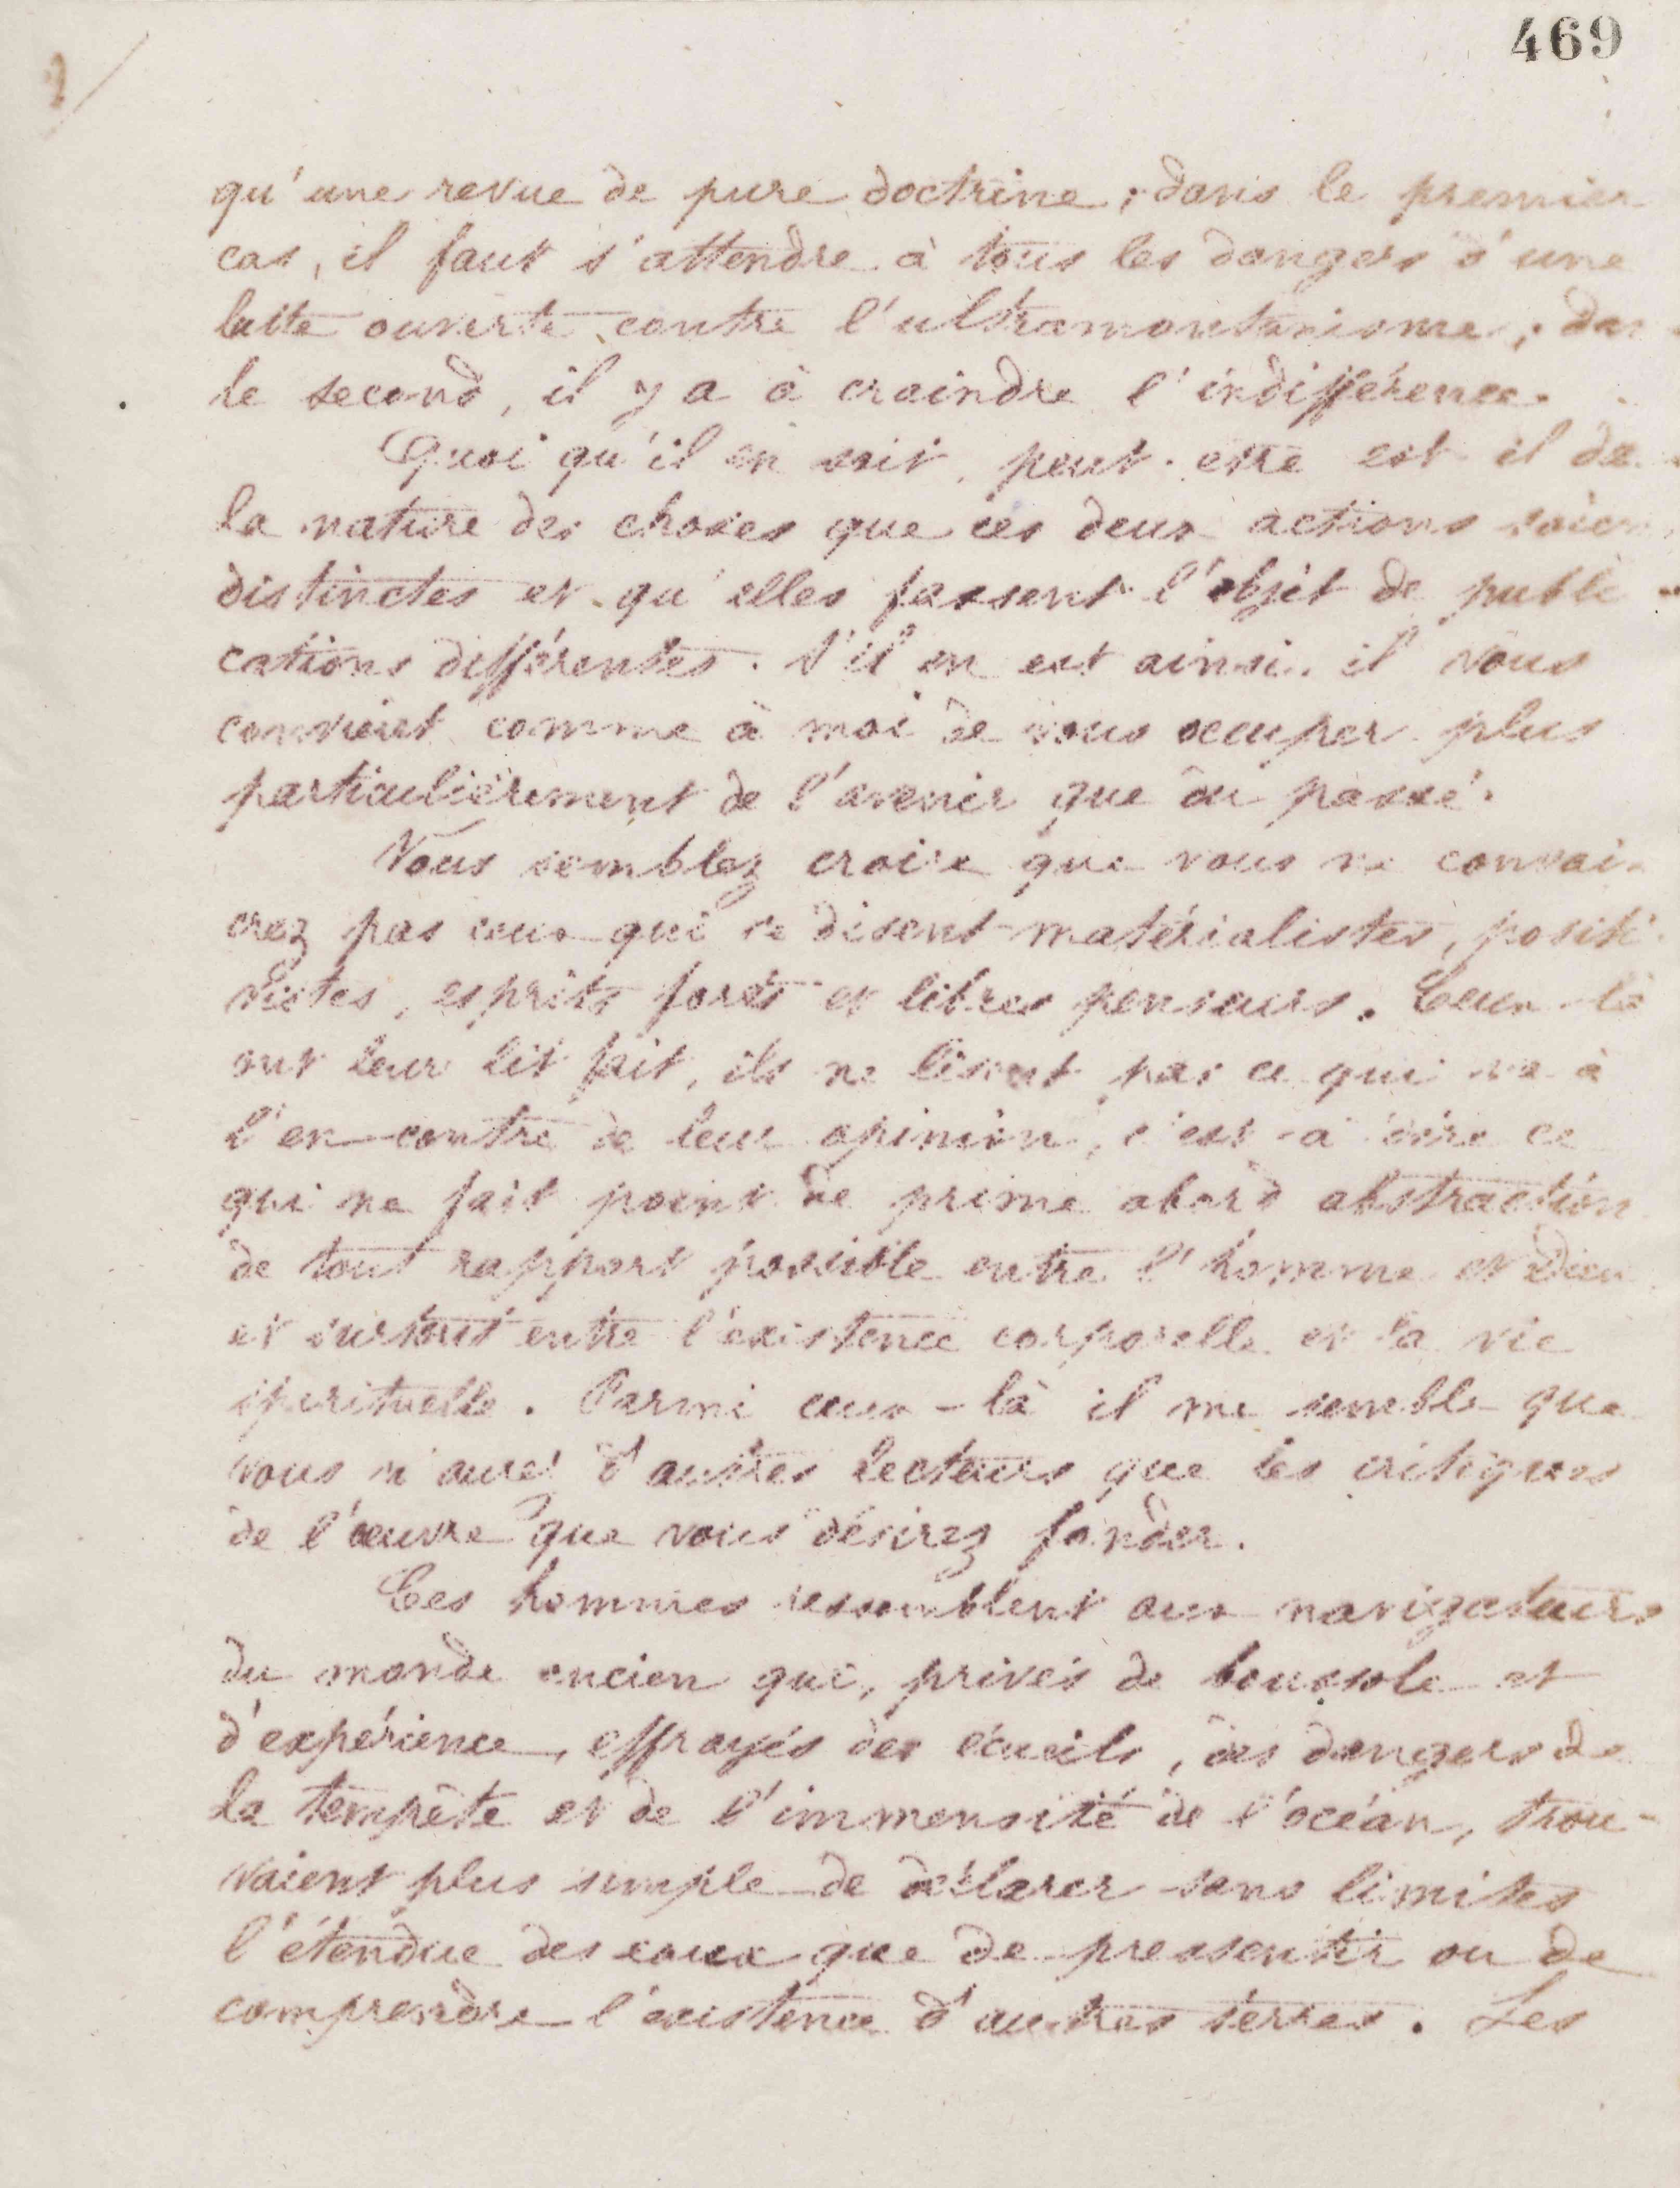 469
qu'une revue de pure doctrine ; dans le premier
cas, il faut s'attendre à tous les dangers d'une
lutte ouverte contre l'ultramontanisme ; dan
le second, il y a à craindre l'indifférence.
Quoi qu'il en soit, peut-etre est il de
la nature des choses que ces deux actions soien
distinctes et qu'elles fassent l'objet de publi-
cations différentes. S'il en est ainsi, il vous
convient comme à moi de vous occuper plus
particulièrement de l'avenir que du passé.
Vous semblez croire que vous ne convain
crez pas ceux qui se disent matérialistes, positi-
vistes, esprits forts et libres penseurs. Ceux-là
ont leur lit fait, ils ne lisent pas ce qui va à
l'en-contre de leur opinion, c'est-à dire ce
qui ne fait point de prime abord abstraction
de tout rapport possible entre l'homme et Dieu
et surtout entre l'existence corporelle et la vie
spirituelle. Parmi ceux-là il me semble que
vous n'aurez d'autres lecteurs que les critiques
de l'œuvre que vous désirez fonder.
Ces hommes ressemblent aux navigateurs
du monde ancien qui, privés de boussole et
d'expérience, effrayés des écueils, des dangers de
la tempête et de l'immensité de l'océan, trou-
vaient plus simple de déclarer sans limites
l'étendue des eaux que de pressentir ou de
comprendre l'existence d'autres terres. Les